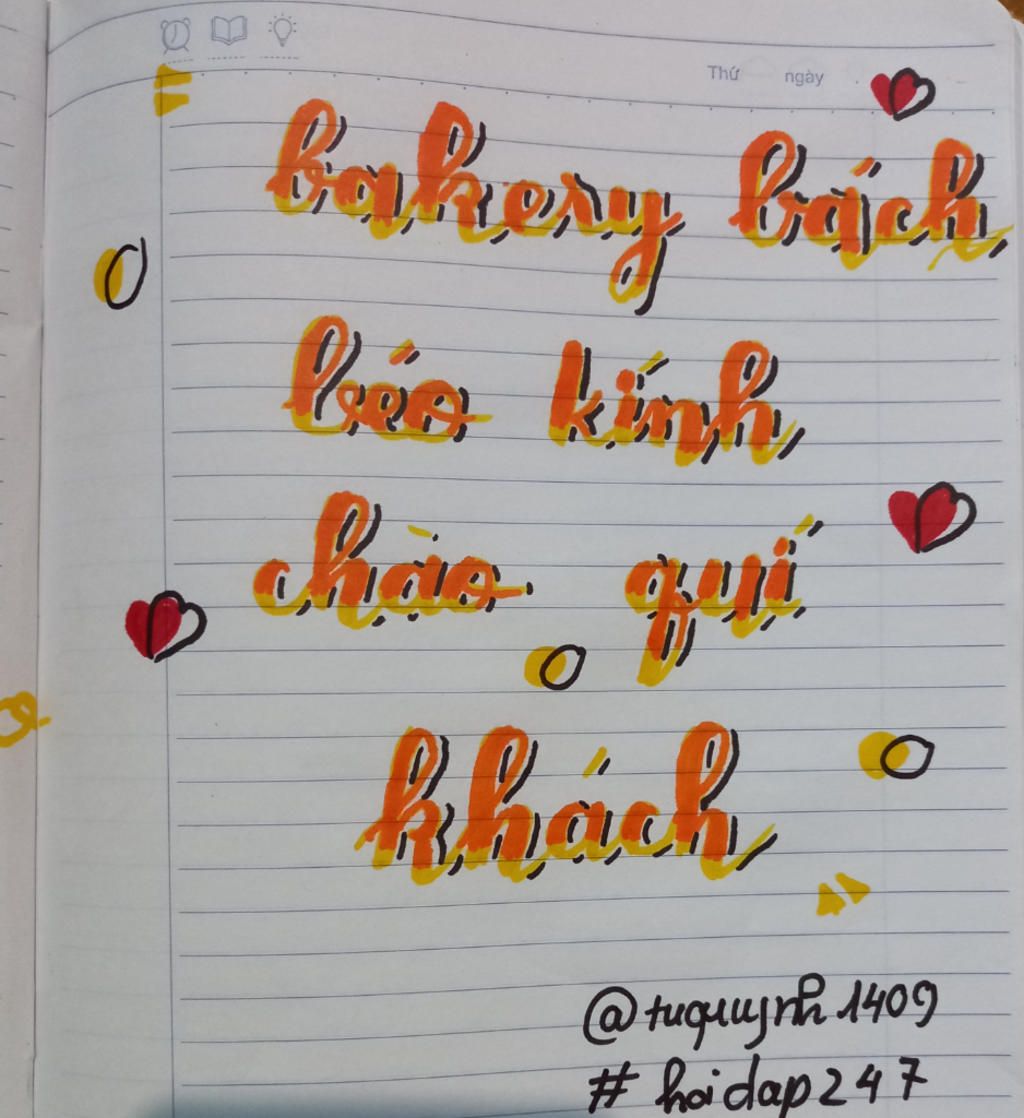 Thứ ngày
bakery bách
béo kính
chào quí
khách
@tuquuynh1409
#hoidap247